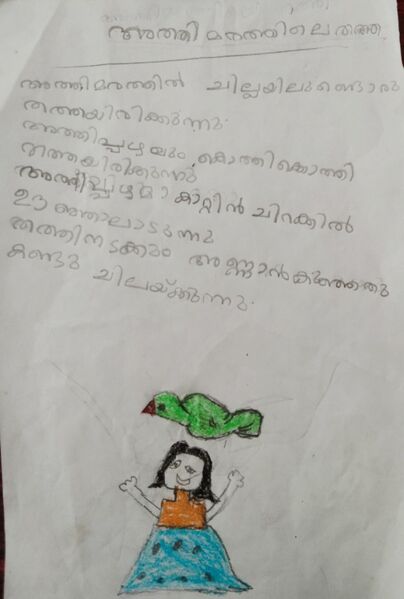 അത്തി മരത്തയിലെ തത്ത
അത്തിമരത്തിൽ ചില്ലയിലുണ്ടൊരു
തത്തയിരിക്കുന്നു.
അത്തിപ്പഴവും കൊത്തികൊത്തി
തത്തയിരിക്കുന്നു
അത്തിപ്പഴമാ കാറ്റിൻ ചിറകിൽ
ഊഞ്ഞാലാടുന്നു
തത്തിനടക്കും അണ്ണാൻകുഞ്ഞതു
കണ്ടു ചിലയ്ക്കുന്നു.